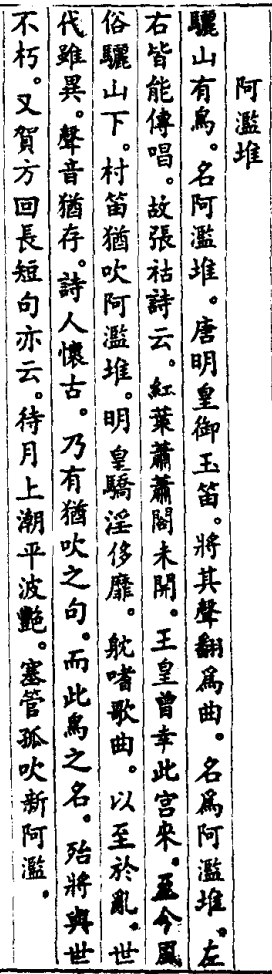 阿濫堆
驪山有鳥。名阿濫堆。唐明皇御玉笛。將其聲翻爲曲。名爲阿濫堆。左
右皆能傳唱。故張祜詩云。紅葉蕭蕭閣未開。玉皇曾幸此宮來。至今風
俗驪山下。村笛猶吹阿濫堆。明皇驕淫侈靡。躭嗜歌曲。以至於亂。世
代雖異。聲音猶存。詩人懷古。乃有猶吹之句。而此鳥之名。殆將與世
不朽。又賀方回長短句亦云。待月上潮平波艷。塞管孤吹新阿濫。